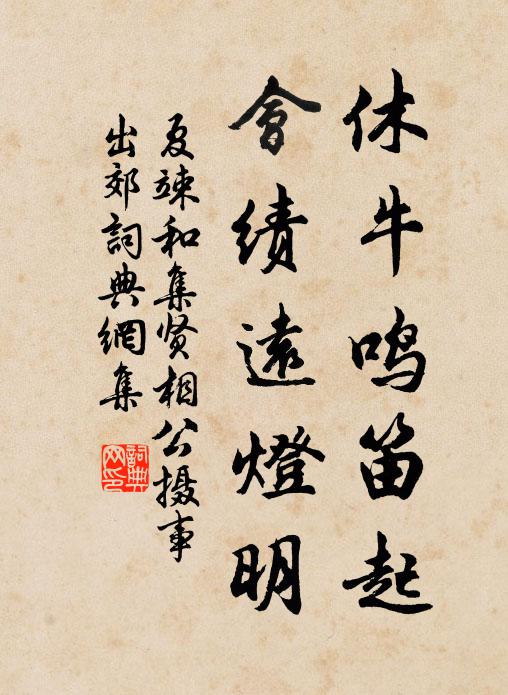 休牛鸣笛起
會绩遠燈明
夏竦和集贤相公摄事
出郊詞典網集
詞典网印